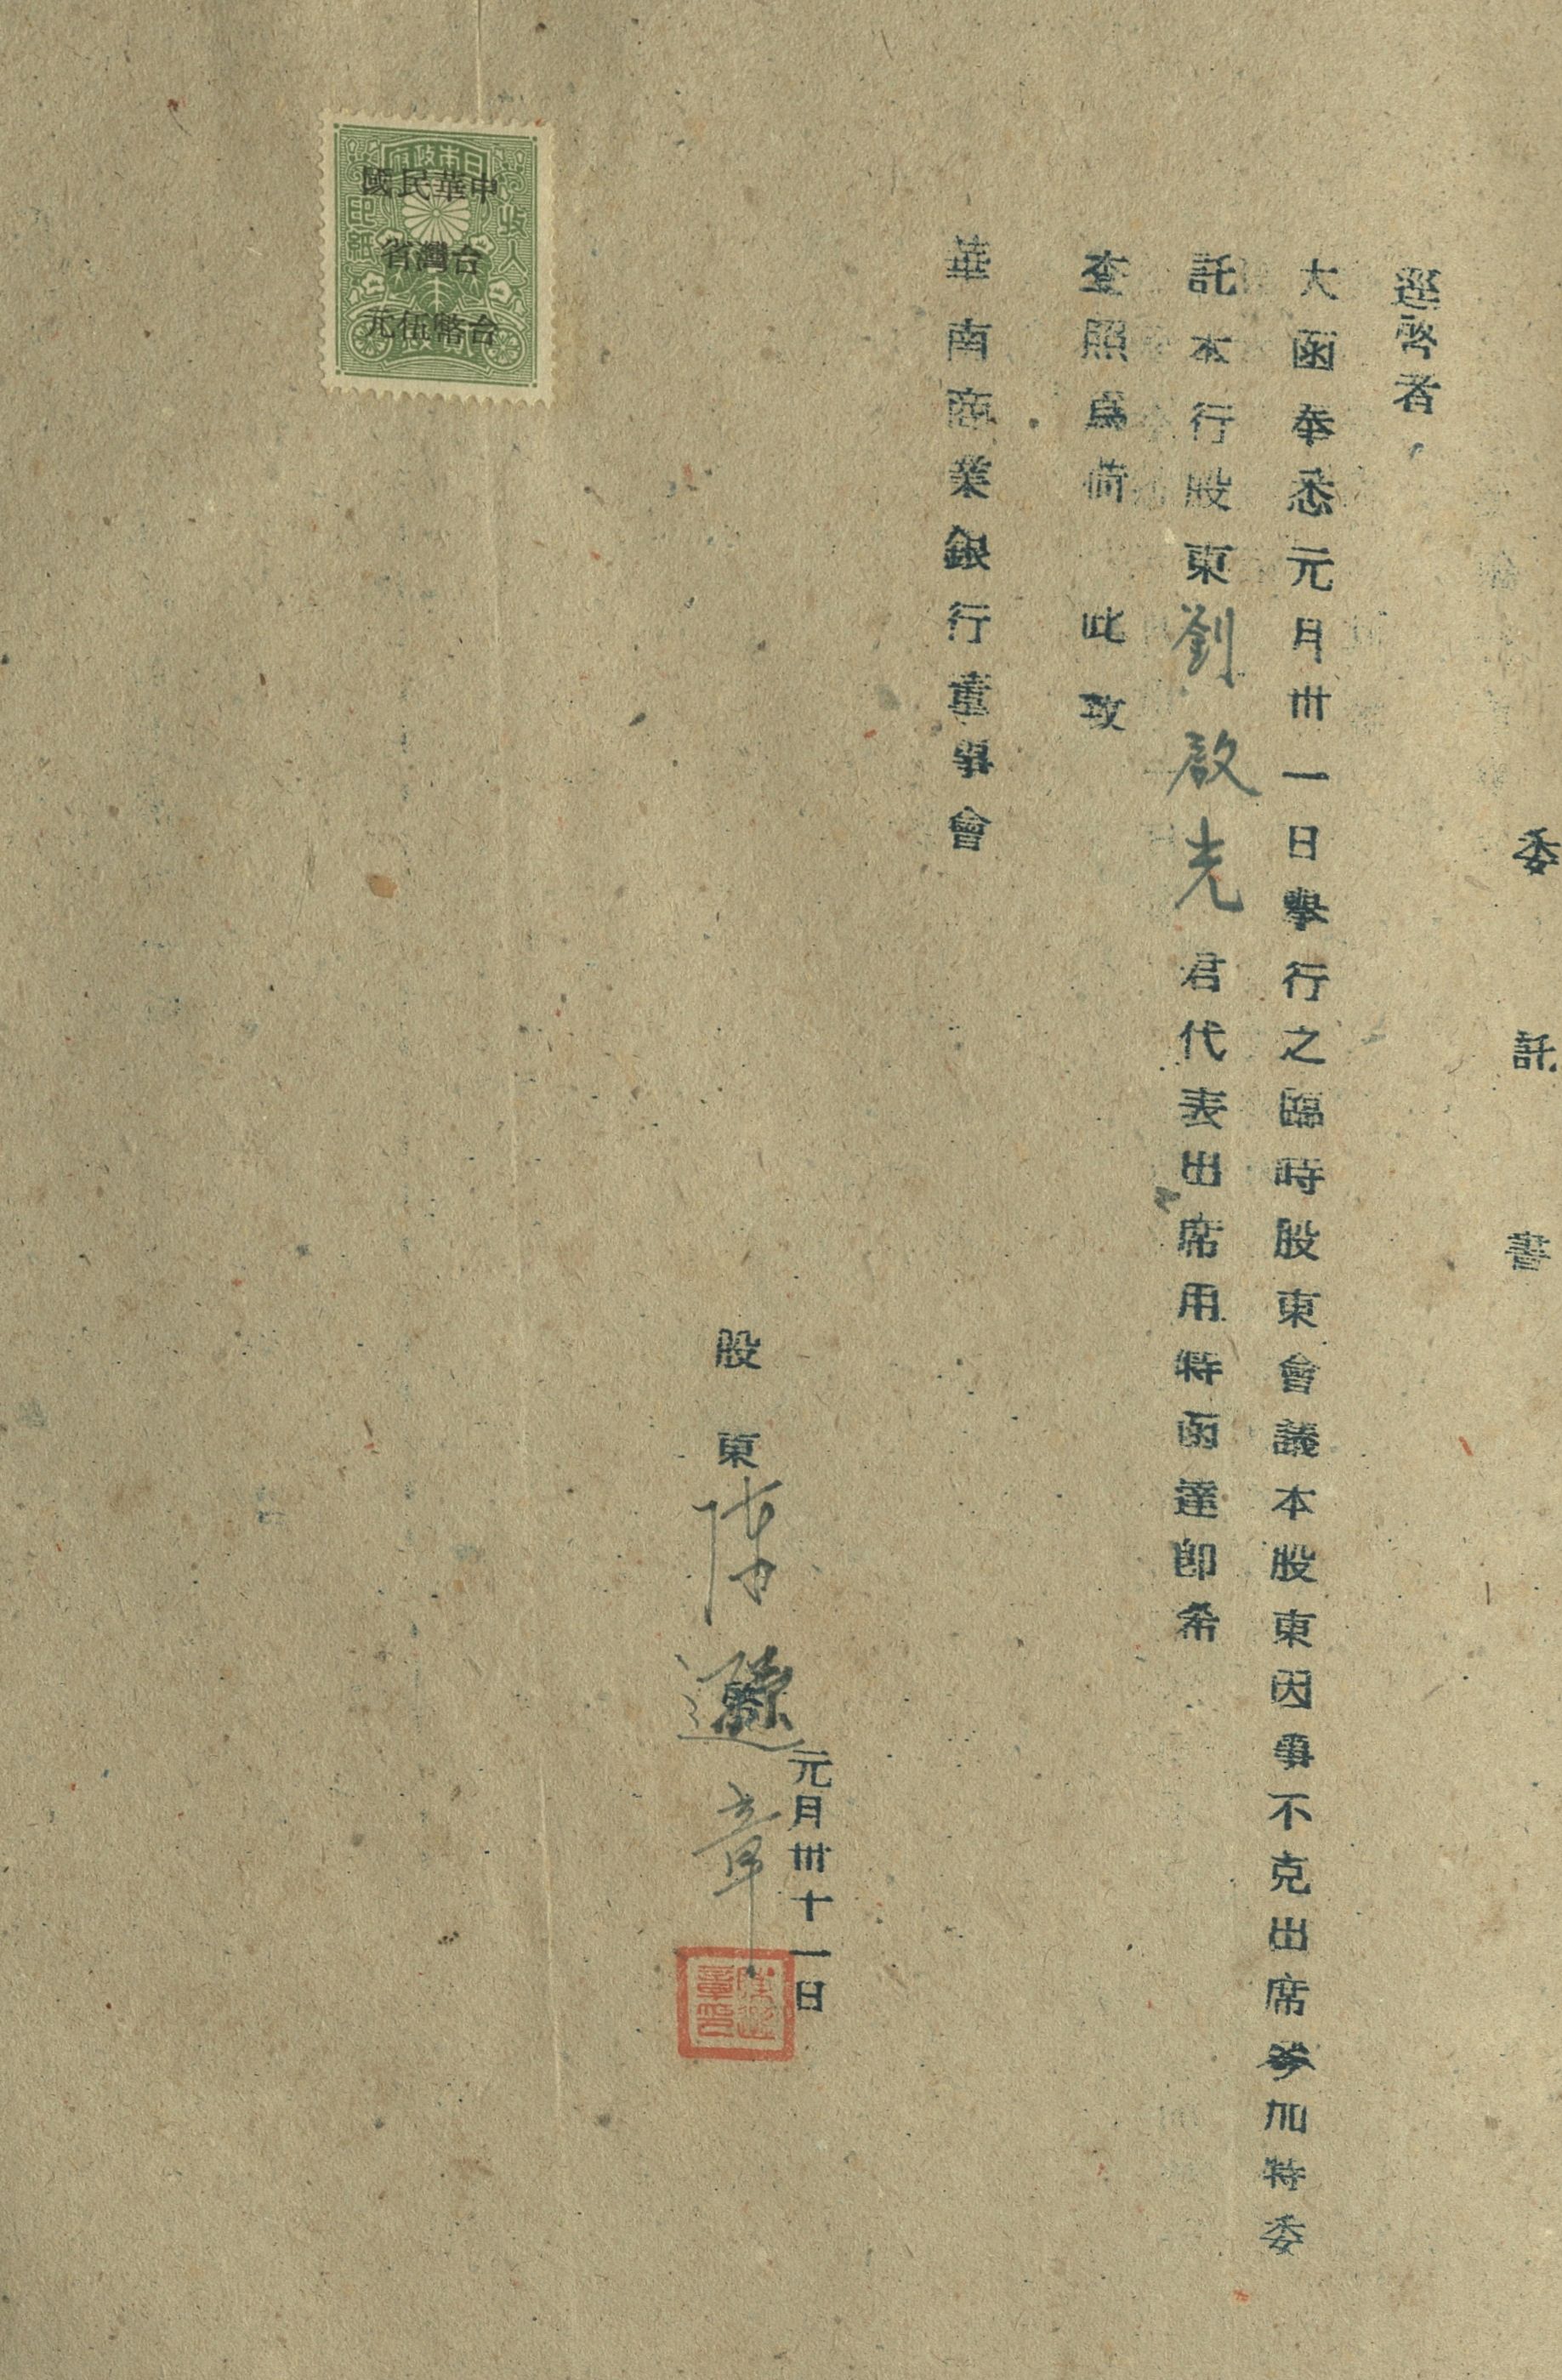 委託書
逕啓者，
大函奉悉元月卅一日擧行之臨時股東會議本股東因事不克出席參加特委
託本行股東劉啟光君代表出席用特函達卽希
查照爲荷 此致
華南商業銀行董事會
元月卅十一日
股東陳遜章
日本政府
收入印紙
中華民國
台灣省
台幣伍元